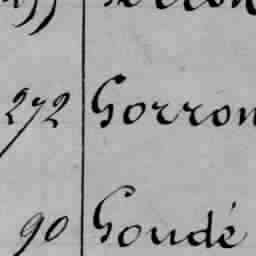 272 Gorron
90 Goudé